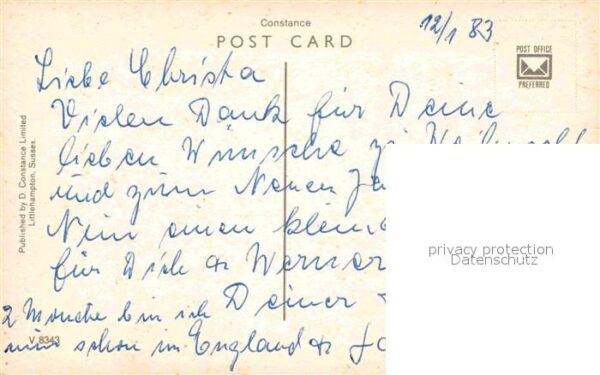 Constance
POST CARD
12/1 83
POST OFFICE
PREFERRED
Liebe Christa
Vielen Dank für Deine
lieben Wünsche zu
und zum Neuen Ja
Nun einen klein
für Dich & Werner
2 Monate bin ich Deiner
nun schon in England &
privacy protection
Datenschutz
Published by D. Constance Limited
Littlehampton, Sussex.
V 8343